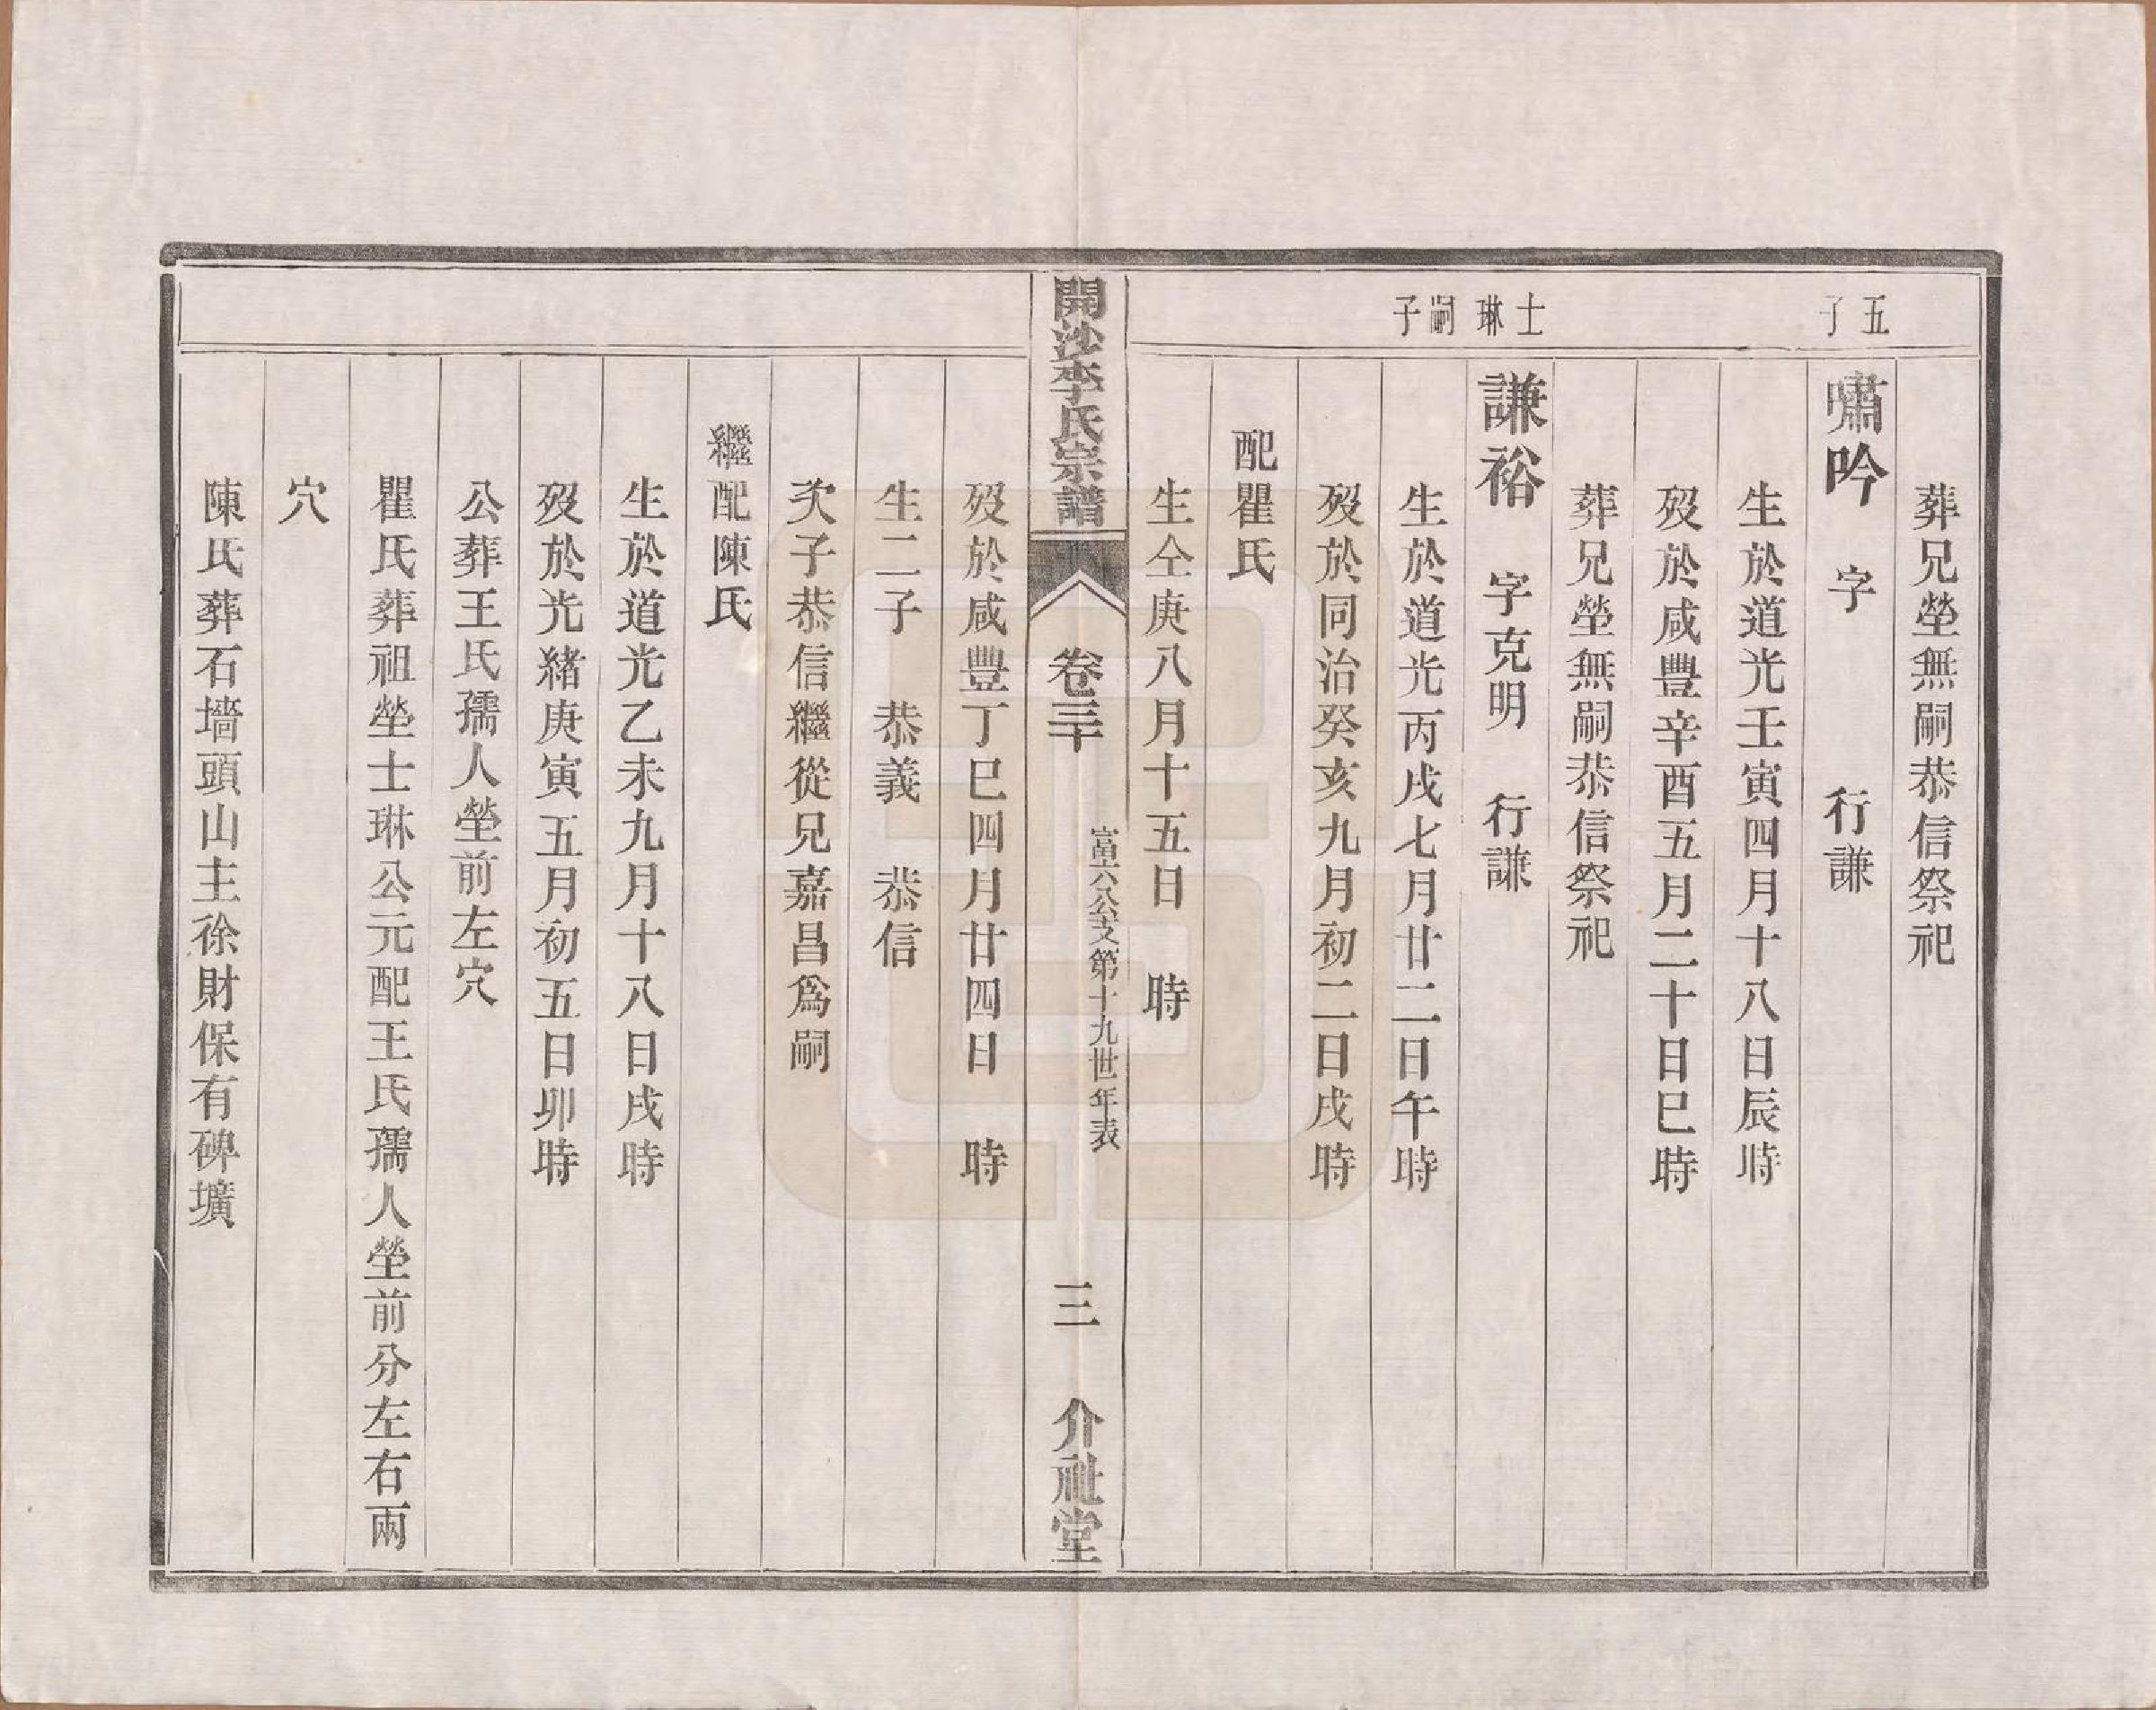 葬兄塋無嗣恭信祭祀
五子
嘯吟　字　　　行謙
生於道光壬寅四月十八日辰時
歿於咸豐辛酉五月二十日巳時
葬兄塋無嗣恭信祭祀
士琳嗣子
謙裕　字克明　行謙
生於道光丙戌七月廿二日午時
歿於同治癸亥九月初二日戌時
配瞿氏
生仝庚八月十五日　時
開沙李氏宗譜　卷三十　富六公支第十九世年表　三　介祉堂
歿於咸豐丁巳四月廿四日　時
生二子　恭義　恭信
次子恭信繼從兄嘉昌爲嗣
繼配陳氏
生於道光乙未九月十八日戌時
歿於光緒庚寅五月初五日卯時
公葬王氏孺人塋前左穴
瞿氏葬祖塋士琳公元配王氏孺人塋前分左右兩
穴
陳氏葬石墻頭山主徐財保有碑壙